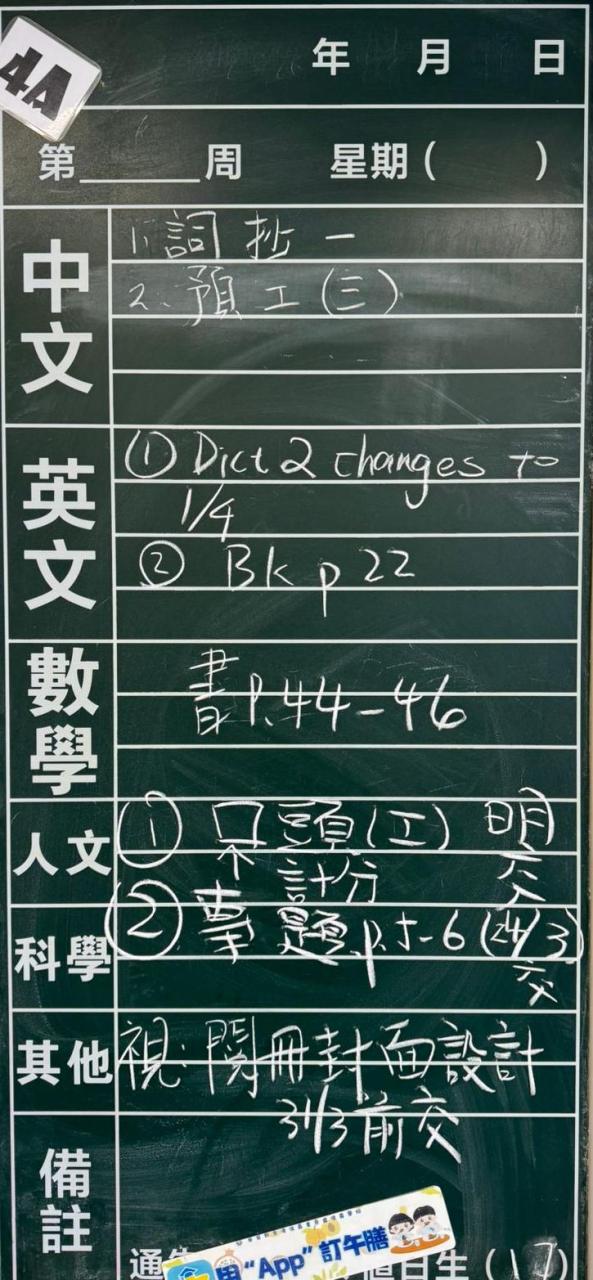 4A
年 月 日
第 周 星期( )
中文
1. 詞 抄 一
2. 預 工 (三)
英文
① Dict 2 changes to
1/4
② Bk p 22
數學
書 P.44-46
人文
① 口頭(工) 明交
不計分
科學
② 專題 p.5-6 (24/3)
交
其他
視:閱冊封面設計
31/3前交
備註
用 "App" 訂午膳
值日生 (17)